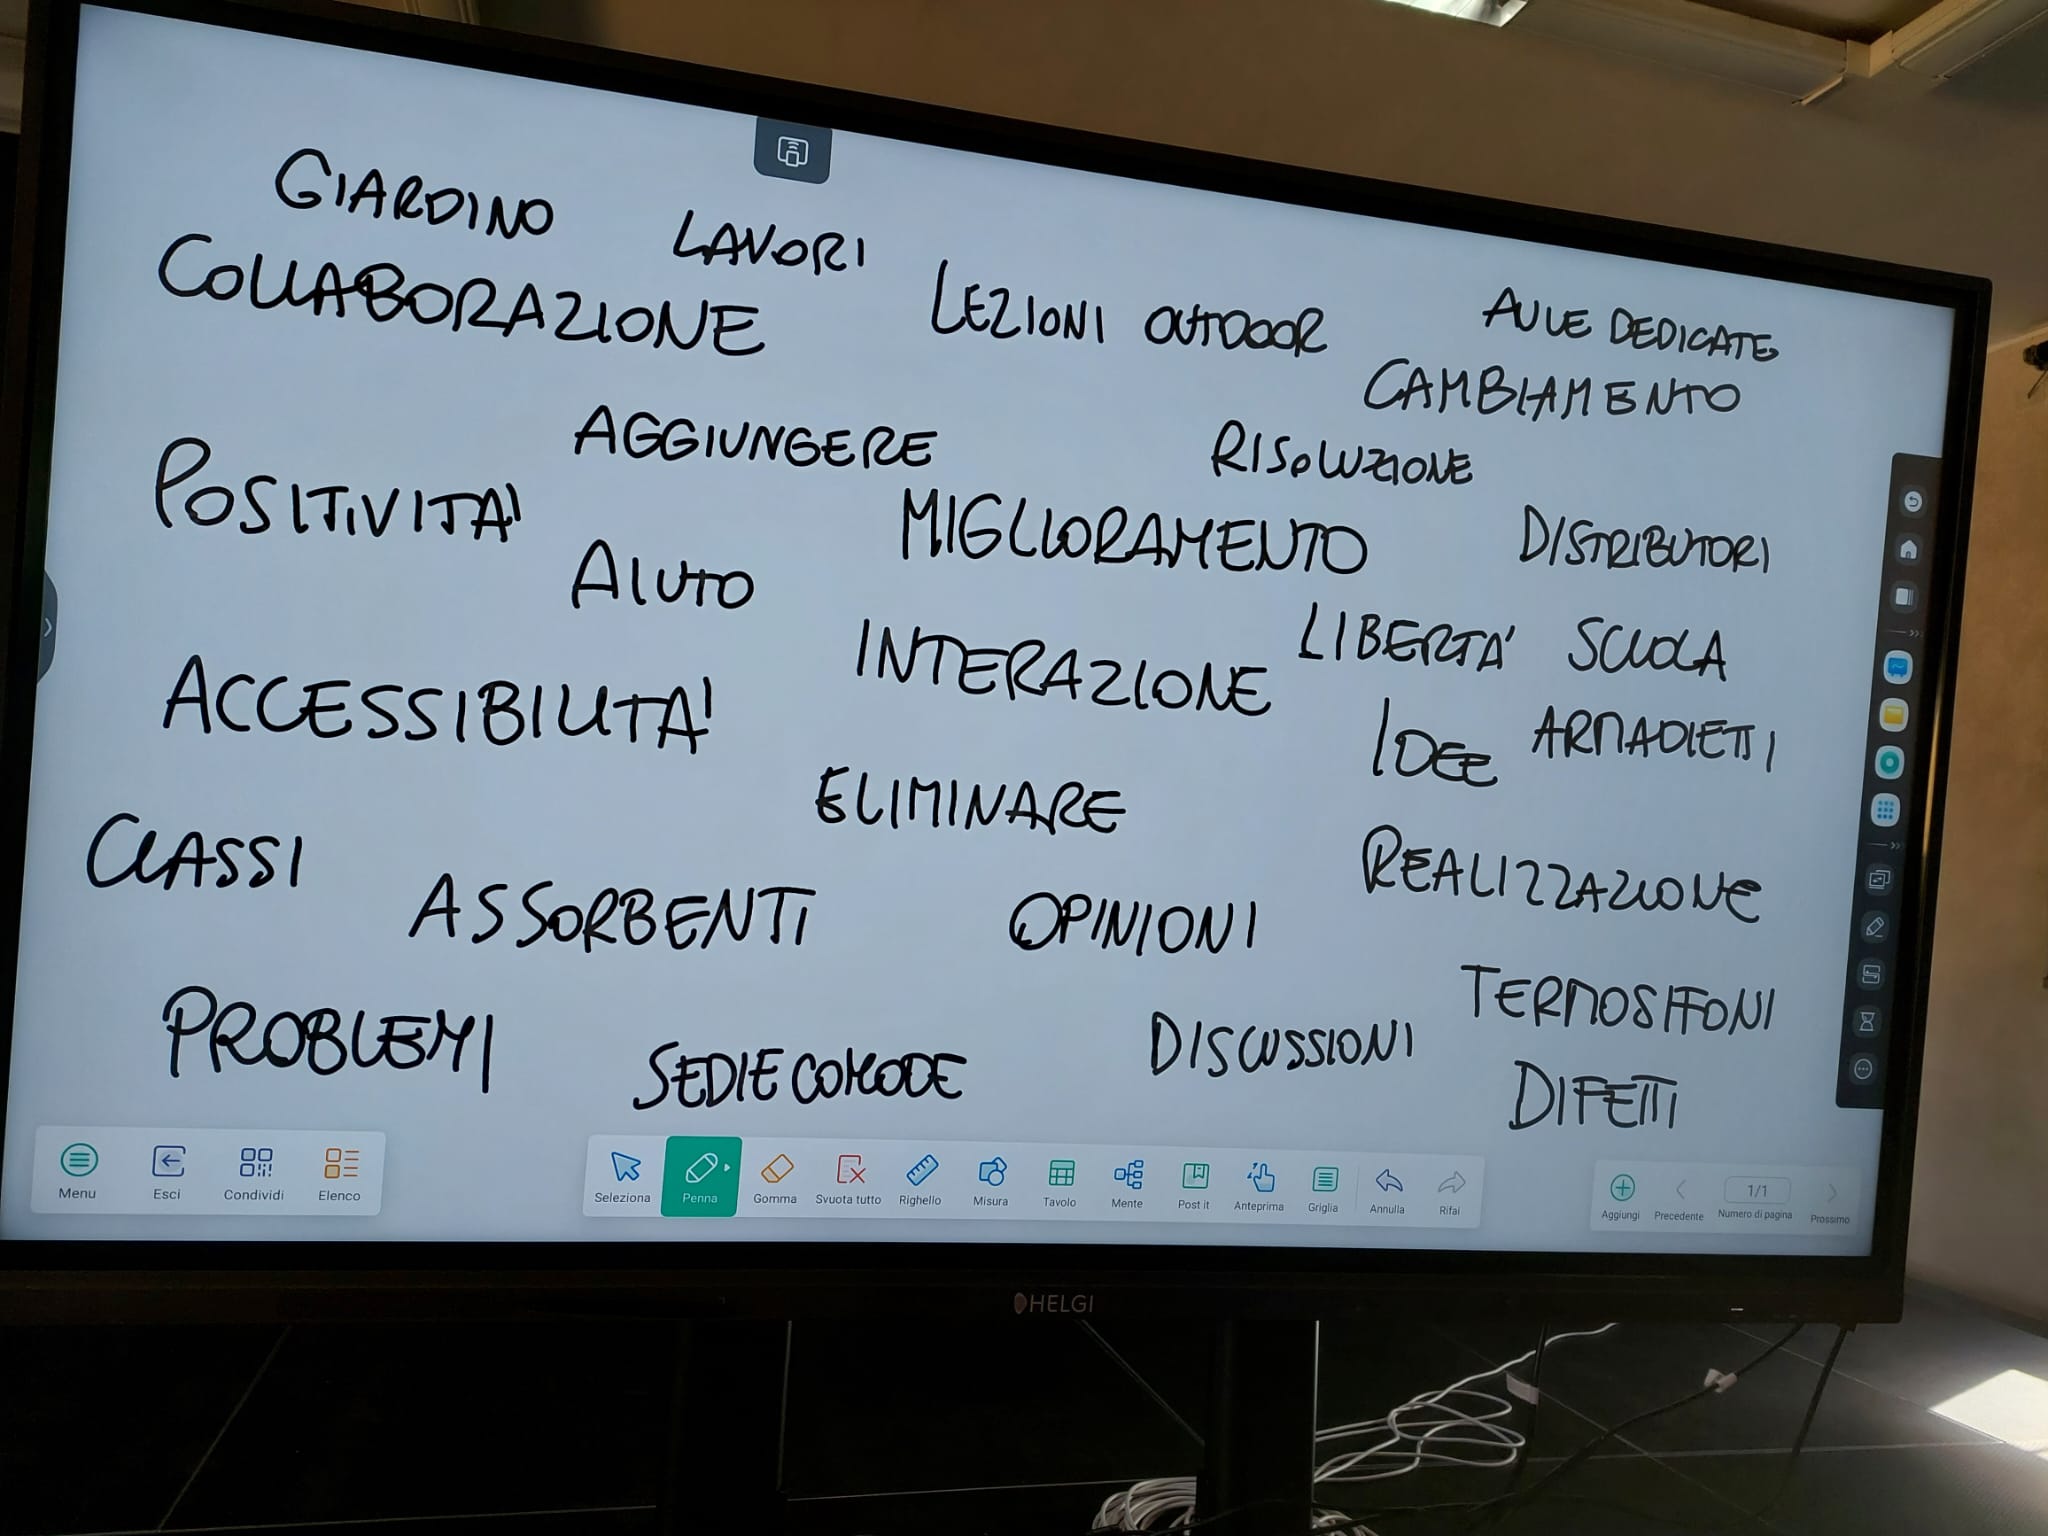 GIARDINO
LAVORI
COLLABORAZIONE
LEZIONI OUTDOOR
AULE DEDICATE
CAMBIAMENTO
AGGIUNGERE
RISOLUZIONE
POSITIVITA'
MIGLIORAMENTO
DISTRIBUTORI
AIUTO
INTERAZIONE
LIBERTA' SCUOLA
ACCESSIBILITA'
IDEE ARMADIETTI
ELIMINARE
CLASSI
REALIZZAZIONE
ASSORBENTI
OPINIONI
TERMOSIFONI
PROBLEMI
SEDIE COMODE
DISCUSSIONI
DIFETTI
Menu Esci Condividi Elenco
Seleziona Penna Gomma Svuota tutto Righello Misura Tavolo Mente Post it Anteprima Griglia Annulla Rifai
1/1
Aggiungi Precedente Numero di pagina Prossimo
HELGI